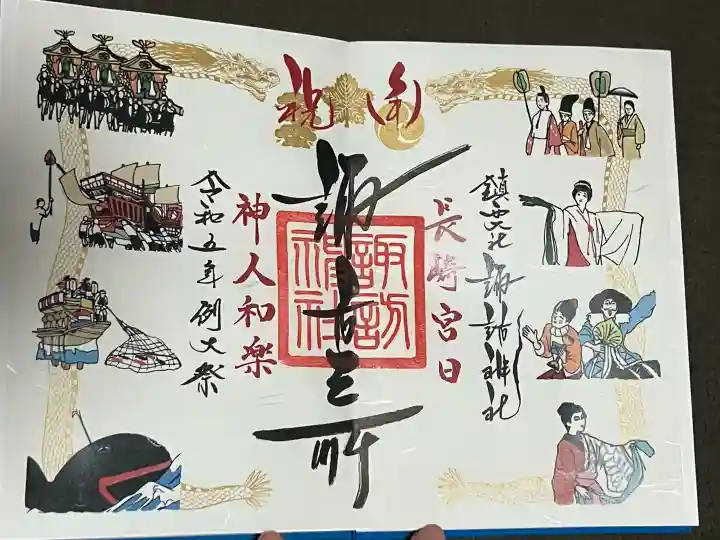 奉祝
鎮西大社 諏訪神社
長崎宮日
諏 三所
諏訪神社
神人和樂
令和五年例大祭